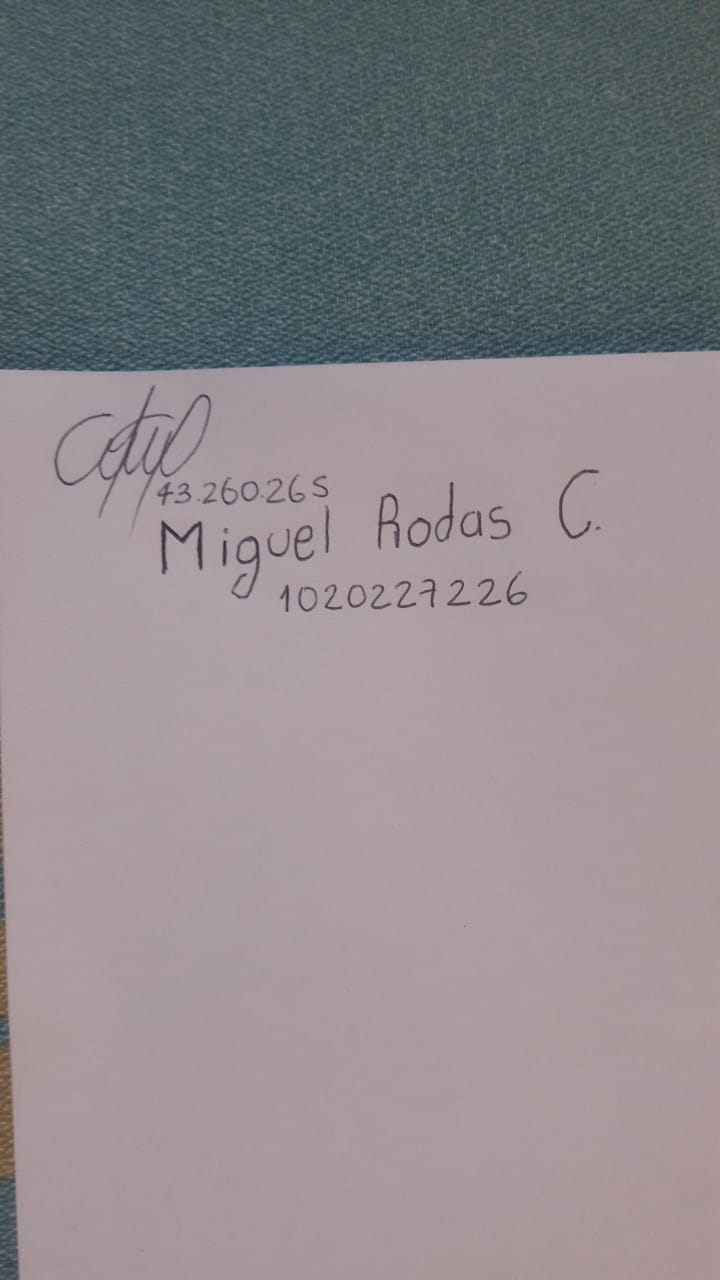 43.260.265
Miguel Rodas C.
1020227226